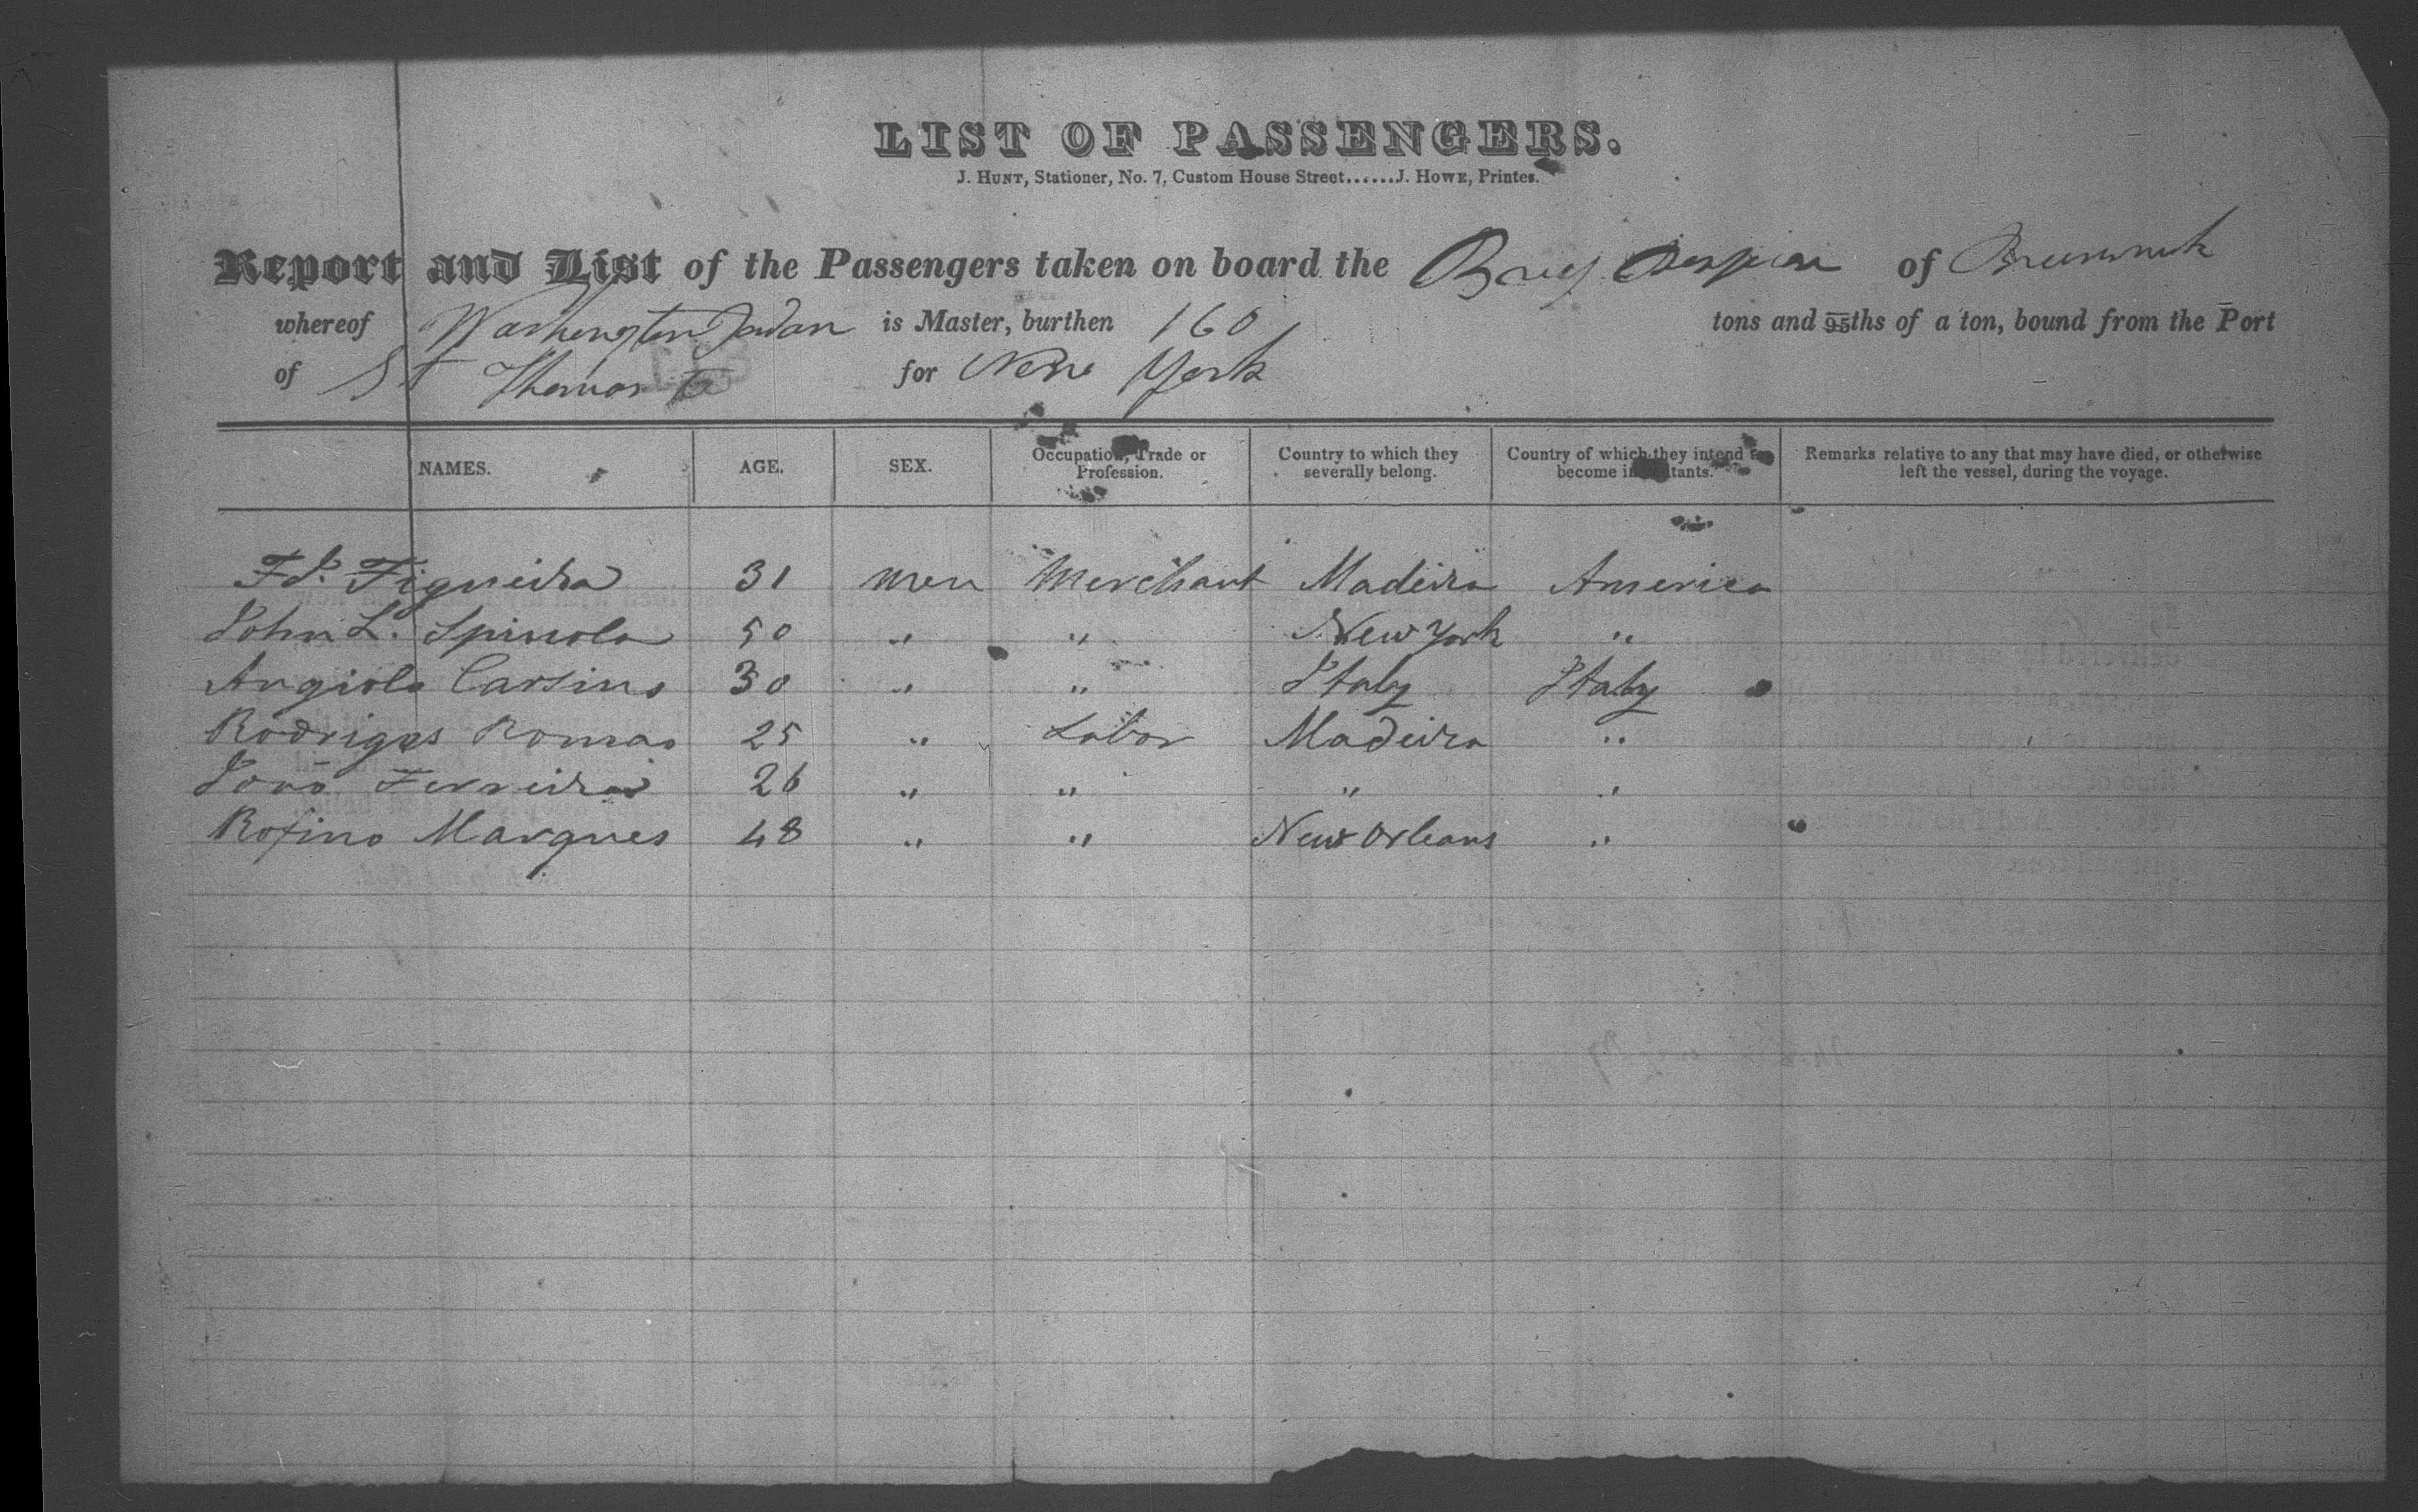 LIST OF PASSENGERS.
J. HUNT, Stationer, No. 7, Custom House Street......J. HOWE, Printer.
Report and List of the Passengers taken on board the Brig of Brunswick
whereof Washington Jordan is Master, burthen 160 tons and 95ths of a ton, bound from the Port
of St Thomas for New York
NAMES. AGE. SEX. Occupation, Trade or Profession. Country to which they severally belong. Country of which they intend to become inhabitants. Remarks relative to any that may have died, or otherwise left the vessel, during the voyage.
Fd. Figueira 31 men Merchant Madeira America
John L. Spinola 50 " " New York "
Angiolo Carsino 30 " " Italy Italy
Rodrigus Romao 25 " Labor Madeira "
Joaõ Ferreira 26 " " " "
Rofino Marques 48 " " New Orleans "